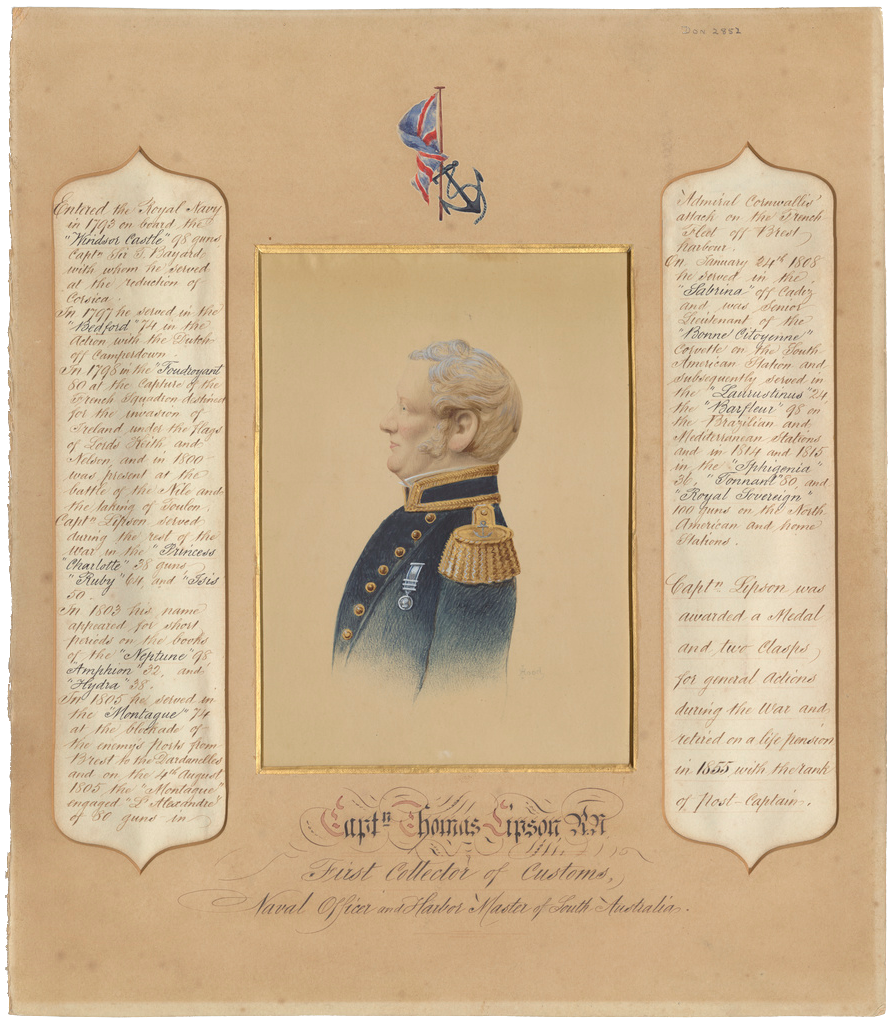 DON 2852
Entered the Royal Navy
in 1793 on board the
"Windsor Castle" 98 guns
Captn Sir T. Bayard
with whom he served
at the reduction of
Corsica.
In 1797 he served in the
"Bedford" 74 in the
Action with the Dutch
off Camperdown
In 1798 in the "Foudroyant"
80 at the Capture of the
French Squadron destined
for the invasion of
Ireland under the flags
of Lords Keith and
Nelson, and in 1800
was present at the
battle of the Nile and
the taking of Toulon.
Captn Lipson served
during the rest of the
War in the "Princess
Charlotte" 38 guns
"Ruby" 64, and "Isis"
50.
In 1803 his name
appeared for short
periods on the books
of the "Neptune" 98
"Amphion" 32, and
"Hydra" 38.
In 1805 he served in
the "Montague" 74
at the blockade of
the enemy's Ports from
Brest to the Dardanelles
and on the 4th August
1805 the "Montague"
engaged "L'Alexandre"
of 80 guns in
Admiral Cornwallis'
attack on the French
Fleet off Brest
harbour.
On January 24th 1808
he served in the
"Sabrina" off Cadiz
and was senior
Lieutenant of the
"Bonne Citoyenne"
Corvette on the South
American Station and
subsequently served in
the "Laurustinus" 24
the "Barfleur" 98 on
the Brazilian and
Mediterranean Stations
and in 1814 and 1815
in the "Iphigenia"
36, "Tonnant" 80, and
"Royal Sovereign"
100 guns on the North
American and home
Stations.
Captn. Lipson was
awarded a Medal
and two Clasps
for general Actions
during the War and
retired on a life pension
in 1855 with the rank
of Post-Captain.
Captn Thomas Lipson RN
First Collector of Customs,
Naval Officer and Harbor Master of South Australia.